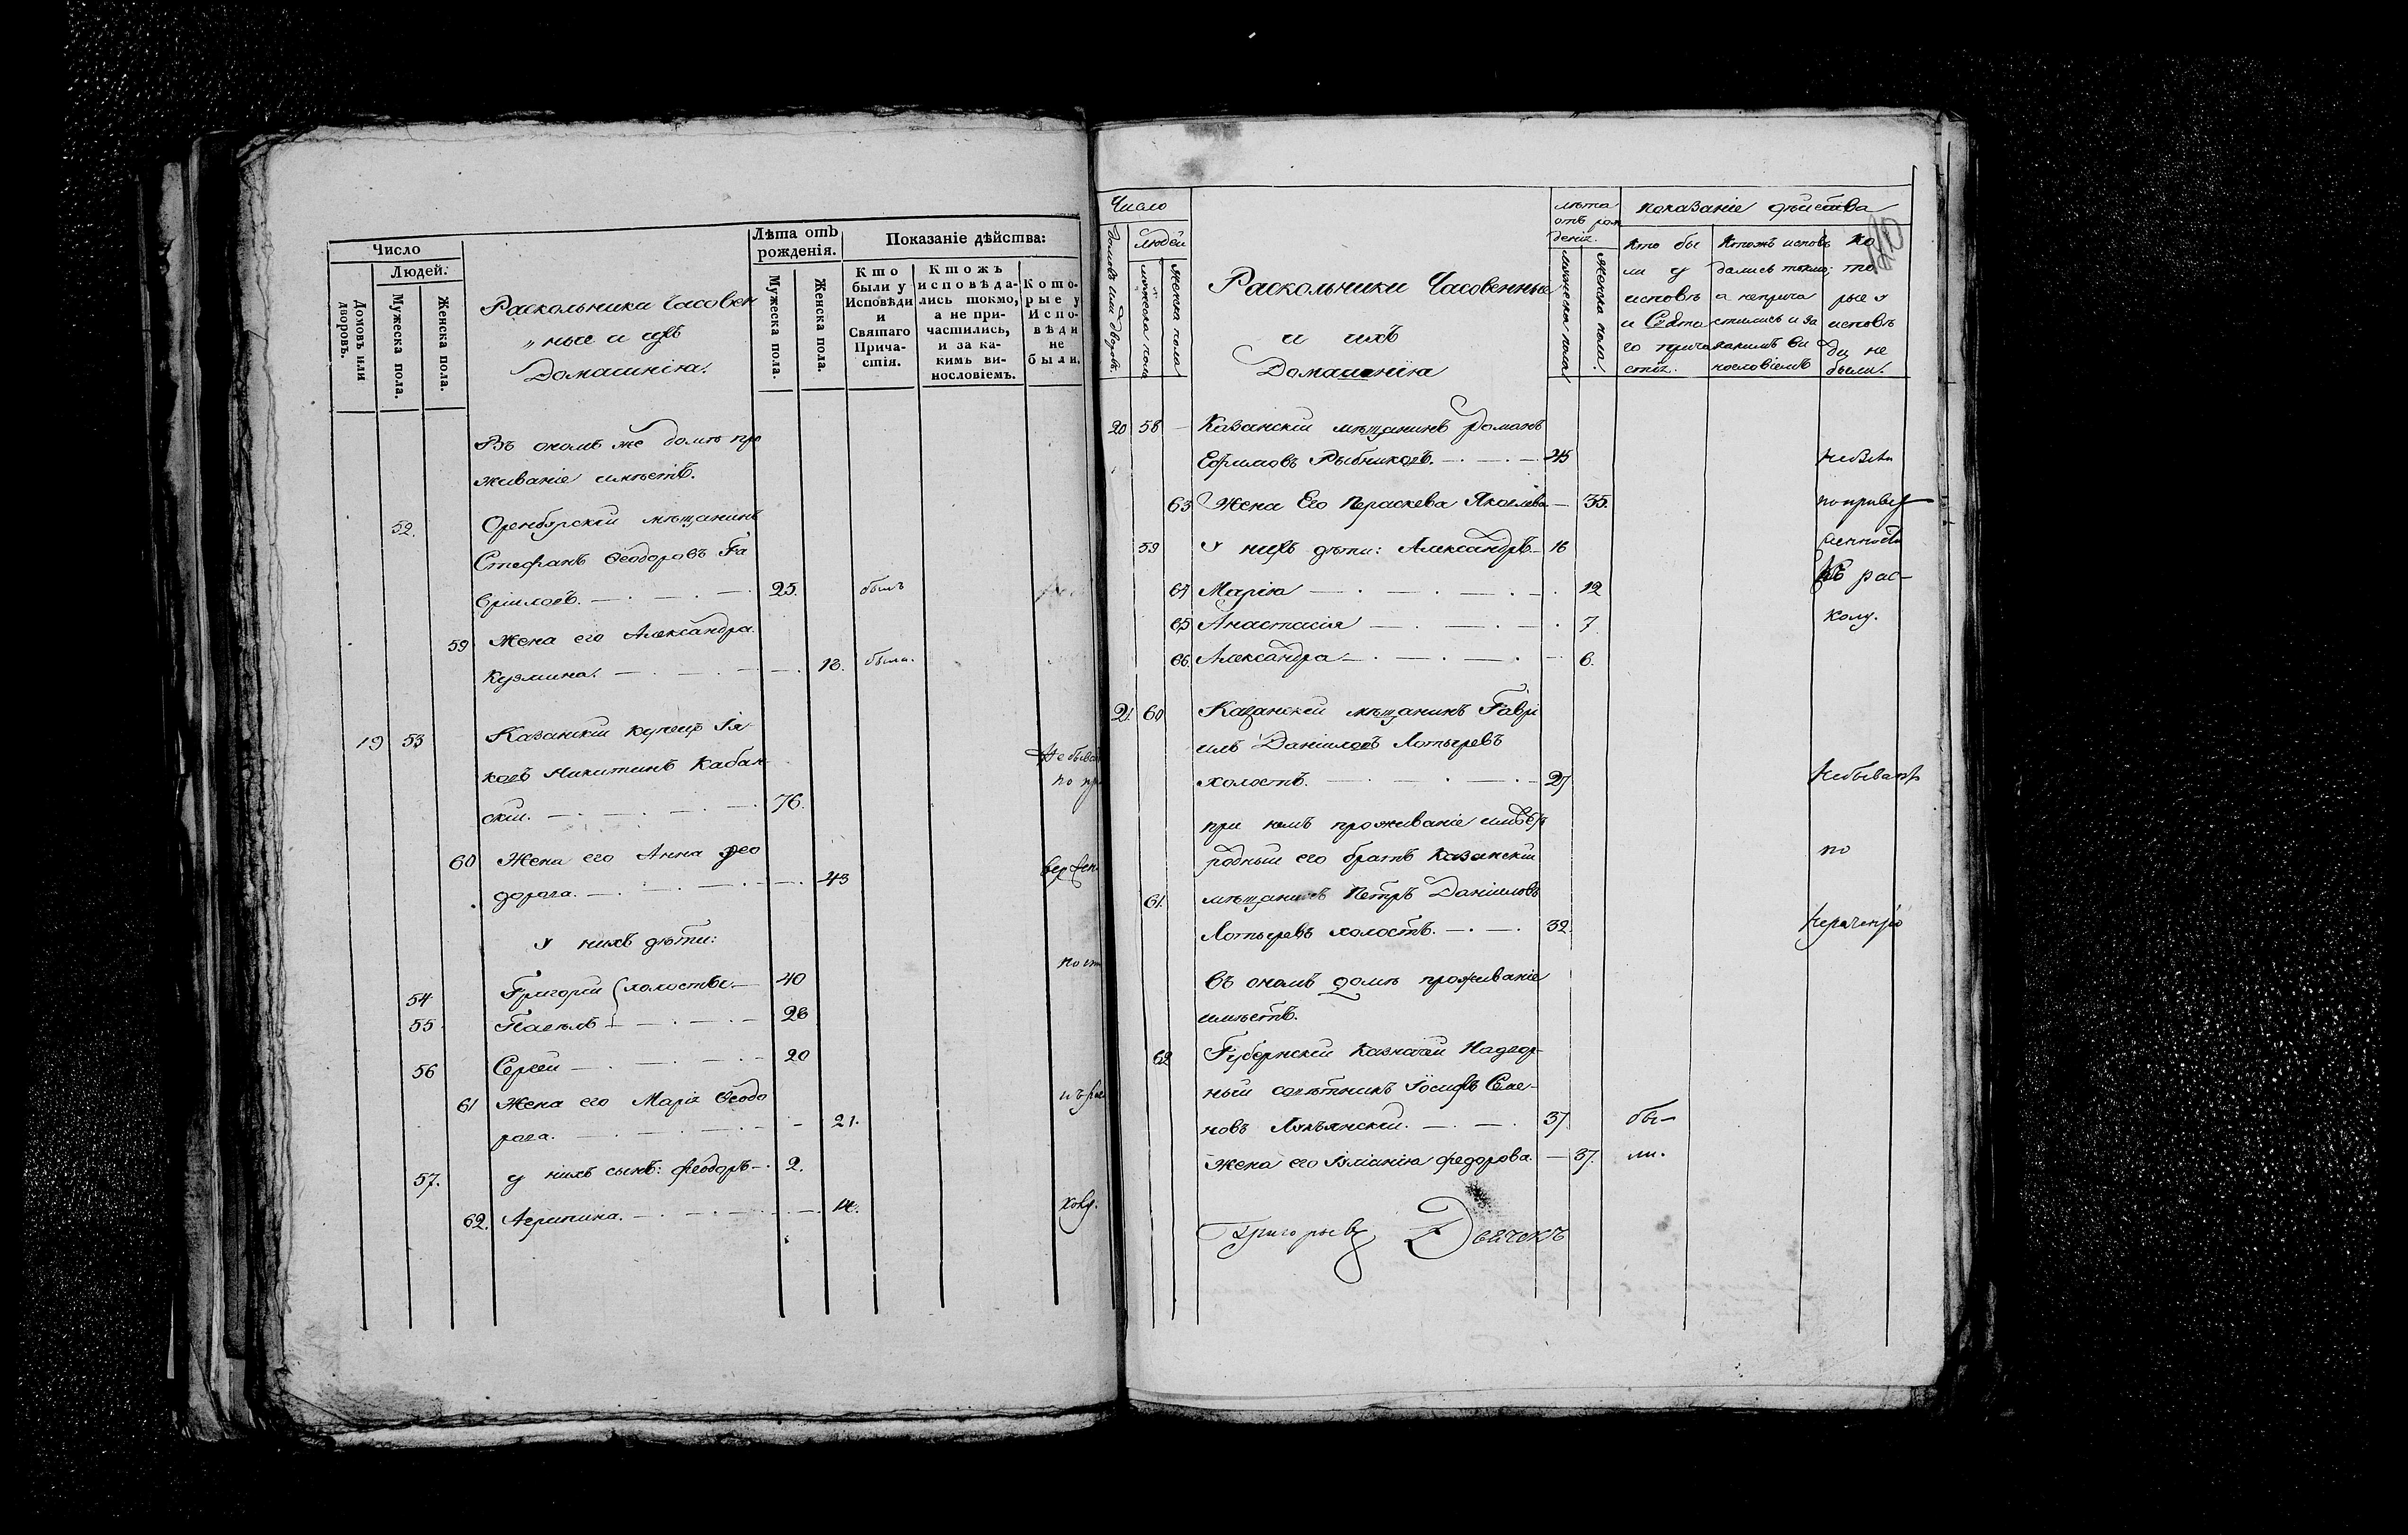 Число
Людей.
Домовъ или дворовъ.
Мужеска пола.
Женска пола.
Раскольники Часовен
„ные и ихъ
Домашнія.
Лѣта отъ рожденія.
Мужеска пола.
Женска пола.
Показаніе дѣйства:
Кто были у Исповѣди и Святаго Причастія.
Ктожъ исповѣдались токмо, а не причастились, и за какимъ винословіемъ.
Которые у Исповѣди не были.
Въ ономъ же домѣ про
живаніе имѣетъ.
52. Оренбурскій мѣщанинъ
Стефанъ Феодоровъ Га
вриловъ. 25. былъ
59 Жена его Александра
Кузмина. 18. была.
19 53 Казанскій купецъ Іа
ковъ Никитинъ Кабан
скій. 76.
Не быва
по пр
60 Жена его Анна Фео
дорова. 43
У нихъ дѣти:
54 Григорій холосты 40
55 Павелъ 28
56 Сергей 20
61 Жена его Марія Феодо
рова. 21.
57. у нихъ сынъ: Феодоръ 2.
62. Агрипина. 14.
колу.
Число
Людей
Домовъ или дворовъ.
Мужеска пола
Женска пола
Раскольники Часовенные
и ихъ
Домашнія
лѣта
отъ рож
денія.
Мужеска пола
Женска пола.
показаніе дѣйства
Кто бы
ли у
исповѣ
и Свята
го прича
стія.
Ктожъ исповѣ
дались токмо;
а неприча
стились и за
какимъ ви
нословіемъ
Ко
то
рые у
исповѣ
ди не
были.
20 58 Казанскій мѣщанинъ Романъ
Ефимовъ Рыбниковъ. 45
63 Жена Его Параскева Яковлева 35.
по привер
59 У нихъ дѣти: Александръ 16
женности
64 Марія 12
къ рас-
65 Анастасія 7
колу.
66. Александра 6.
21. 60 Казанскій мѣщанинъ Гаврі
илъ Даніиловъ Лотыревъ
холостъ. 27
Небываютъ
при немъ проживаніе имѣетъ
родный его братъ Казанскій
по
61. мѣщанинъ Петръ Даніиловъ
Лотыревъ холостъ. 32.
Нераченію
въ ономъ домѣ проживаніе
имѣетъ.
62 Губернскій Казначей Надвор
ный совѣтникъ Іосифъ Семе-
новъ Лукъянскій. 37 бы-
Жена его Федорова. 37. ли.
Григорьевъ Дьячокъ